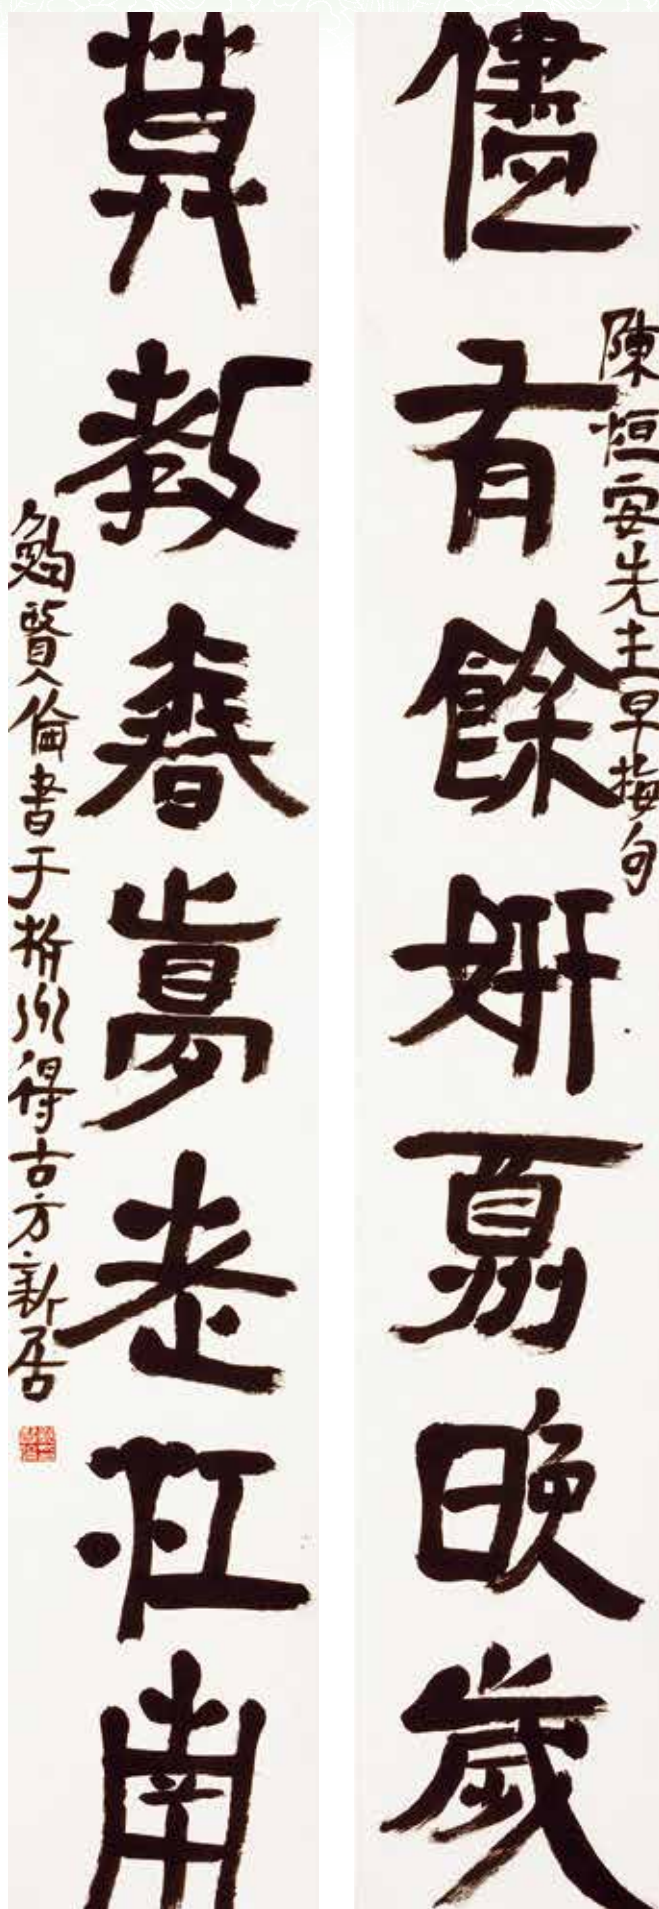 儘有餘妍夏晚歲
陳恒安先生早梅句
莫教春夢老江南
鮑賢倫書于杭州得古方新居